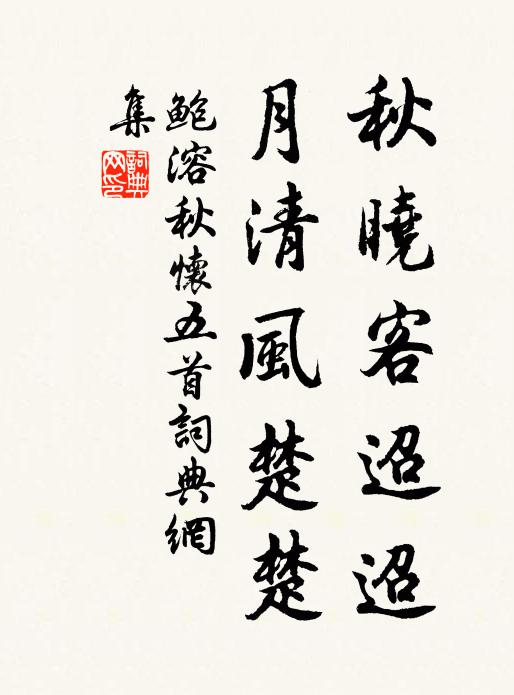 秋曉客迢迢
月清風楚楚
鮑溶秋懷五首詞典網
集
詞典
网印